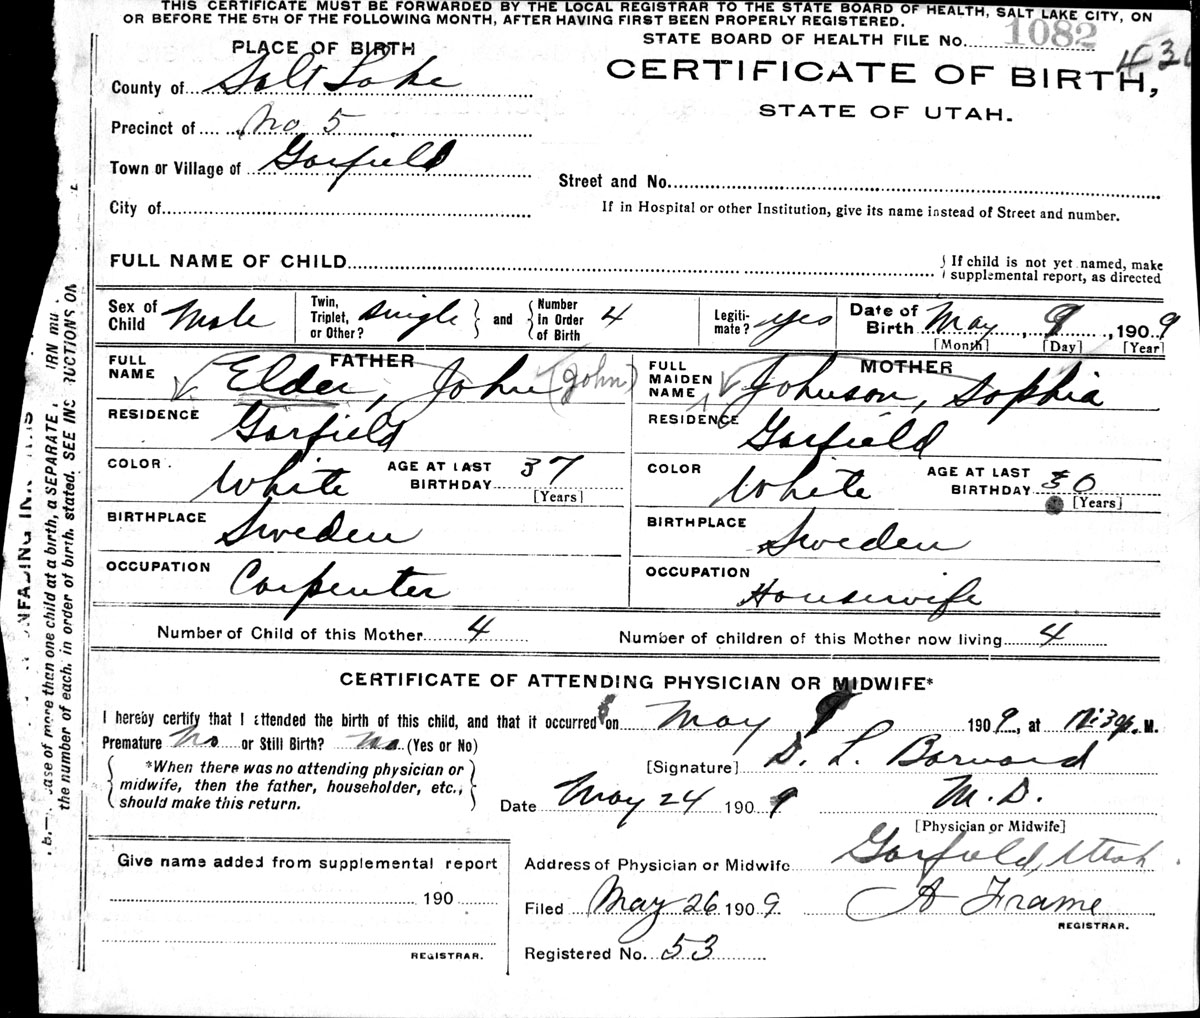 THIS CERTIFICATE MUST BE FORWARDED BY THE LOCAL REGISTRAR TO THE STATE BOARD OF HEALTH, SALT LAKE CITY, ON
OR BEFORE THE 5TH OF THE FOLLOWING MONTH, AFTER HAVING FIRST BEEN PROPERLY REGISTERED.
STATE BOARD OF HEALTH FILE NO. 1082
PLACE OF BIRTH
CERTIFICATE OF BIRTH,
STATE OF UTAH.
County of Salt Lake
Precinct of No 5
Town or Village of Garfield
Street and No.
City of
If in Hospital or other Institution, give its name instead of Street and number.
FULL NAME OF CHILD
If child is not yet named, make
supplemental report, as directed
Sex of Child Male
Twin, Triplet, or Other? Single and Number In Order of Birth 4
Legitimate? yes
Date of Birth May, 9, 1909
[Month] [Day] [Year]
FATHER
FULL NAME Elder, John (John)
RESIDENCE Garfield
COLOR White AGE AT LAST BIRTHDAY 37
[Years]
BIRTHPLACE Sweden
OCCUPATION Carpenter
MOTHER
FULL MAIDEN NAME Johnson, Sophia
RESIDENCE Garfield
COLOR White AGE AT LAST BIRTHDAY 30
[Years]
BIRTHPLACE Sweden
OCCUPATION Housewife
Number of Child of this Mother 4
Number of children of this Mother now living 4
CERTIFICATE OF ATTENDING PHYSICIAN OR MIDWIFE*
I hereby certify that I attended the birth of this child, and that it occurred on May 9 1909, at P. M.
Premature No or Still Birth? No (Yes or No)
*When there was no attending physician or
midwife, then the father, householder, etc.,
should make this return.
[Signature] D. L. Barnard
M.D.
Date May 24 1909
[Physician or Midwife]
Give name added from supplemental report
190
REGISTRAR.
Address of Physician or Midwife Garfield, Utah
Filed May 26 1909 A Frame
REGISTRAR.
Registered No. 53
ase of more than one child at a birth, a SEPARATE
the number of each, in order of birth, stated. SEE INS RUCTIONS ON